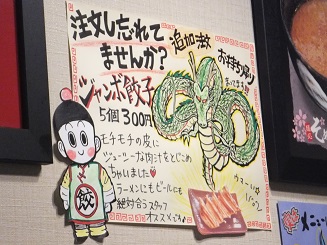 注文し忘れて
ませんか?
追加注文
お持ち帰り
ジャンボ餃子
5個300円
モチモチの皮に
ジューシーな肉汁をとじこめ
ちゃいました♥
ラーメンにもビールにも
絶対合うスタッフ
オススメです
餃